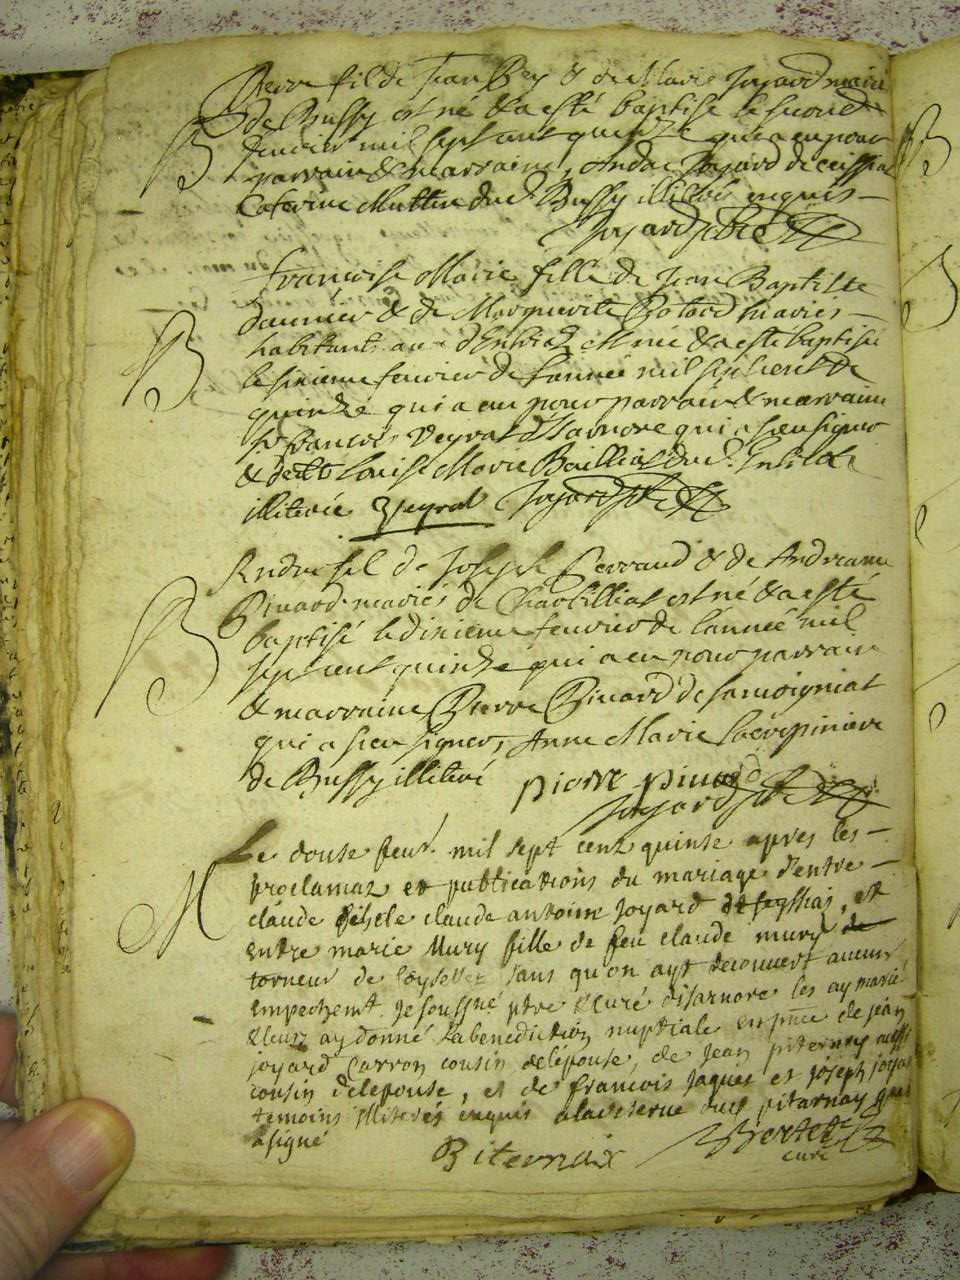 Pierre fil de Jean Bey & de Marie Joyard mariés
B
de Bussy est né & a esté baptisé le second
Janvier mil sept cent quinze qui a eu pour
parrain & marraine, Joyard de
Caterine du d. Bussy illiterés enquis
Joyard ptre
Francoise Marie fille de Jean Baptiste
B
& de Marguerite mariés
habitants est née & a esté baptisée
le sixieme fevrier de l'année mil sept cent
quinze qui a eu pour parrain & marraine
sr francois Veyrat d'Isarnore qui a sceu signer
& Louise Marie du d.
illiterée Veyrat Joyard ptre
André fil de Joseph Perraud & de Andreanne
B
Pinard mariés de Charbilliat est né & a esté
baptisé le dixieme fevrier de l'année mil
sept cent quinze qui a eu pour parrain
& marraine Pierre Pinard de Samoigniat
qui a sceu signer, Anne Marie
de Bussy illiteré pierre pinard
Joyard ptre
Le douse feur. mil sept cent quinse apres les
M
proclamaz et publications du mariage d'entre
claude claude antoine Joyard et
entre marie Mury fille de feu claude mury de
torneur de sans qu'on ayt decouvert aucun
empechemt. Je soussigné ptre & curé d'isarnore les ay marié
& leur ay donné la benediction nuptiale en pnce de jean
joyard carron cousin de lepouse, de Jean piternay aussi
cousin de lepouse, et de francois Jaques et joseph joyard
temoins illiterés enquis a la reserve dud pitarnay qui
a signé
Biternaix Bertet
curé